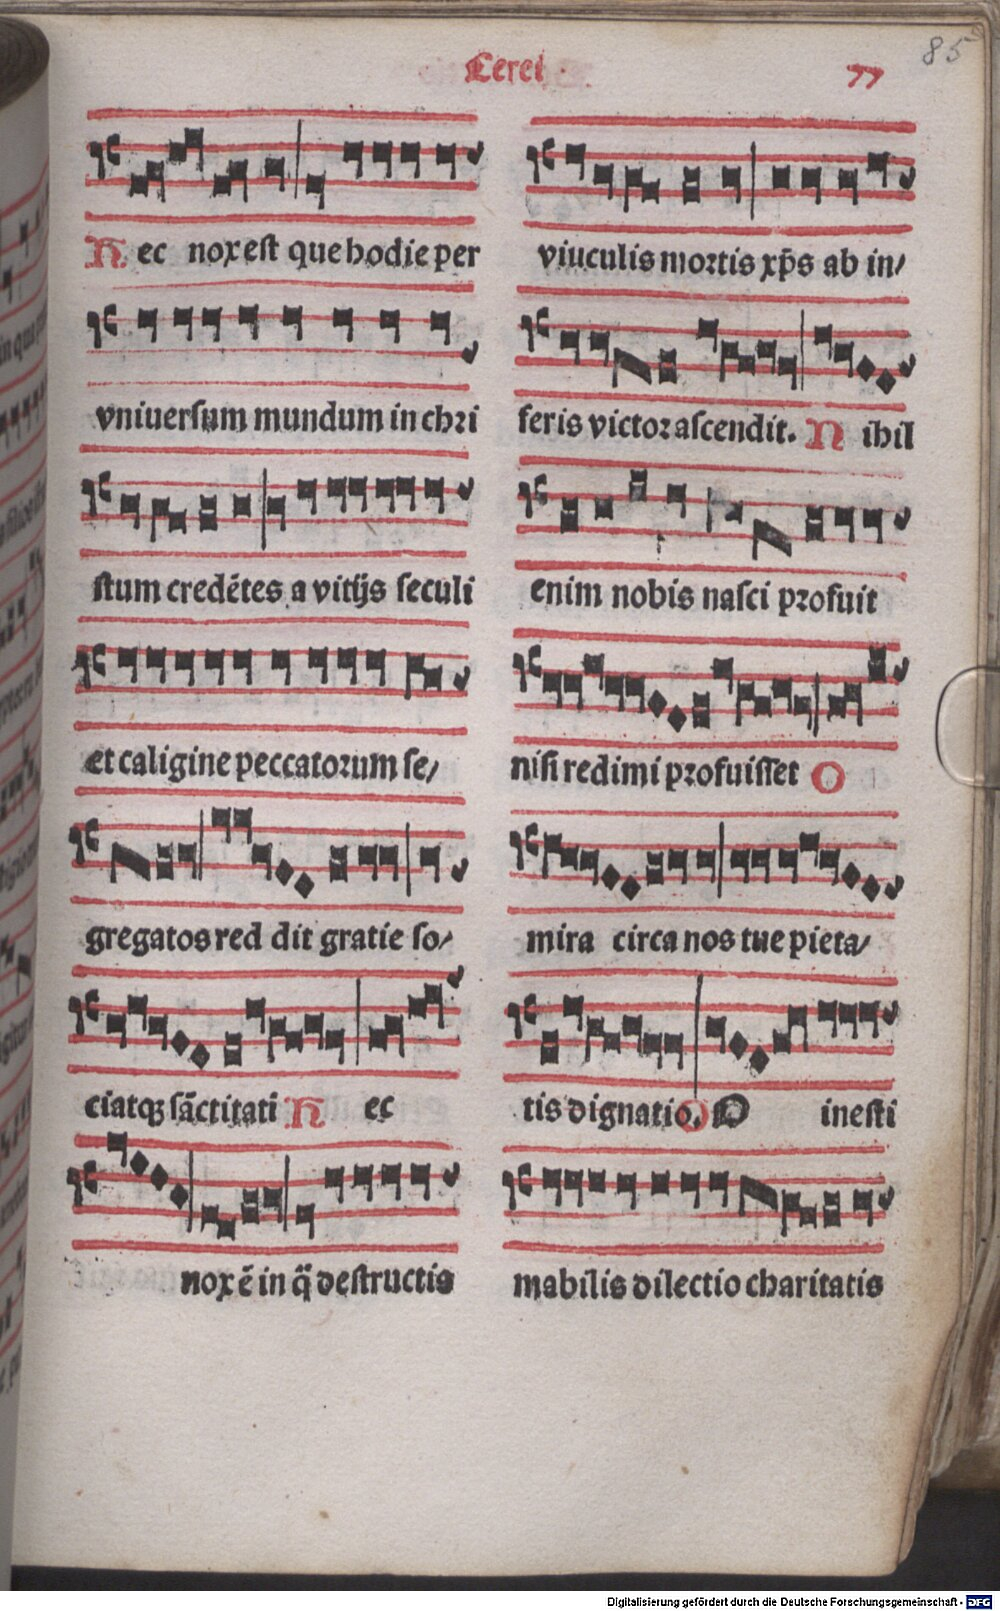 Cerei
77
85
Hec nox est que hodie per
vniuersum mundum in chri
stum credētes a vitijs seculi
et caligine peccatorum se/
gregatos red dit gratie so/
ciatqꝫ sāctitati Hec
nox ē in q̄ destructis
viuculis mortis xp̄s ab in/
feris victor ascendit. Nihil
enim nobis nasci profuit
nisi redimi profuisset O
mira circa nos tue pieta/
tis dignatio. O inesti
mabilis dilectio charitatis
Digitalisierung gefördert durch die Deutsche Forschungsgemeinschaft - DFG